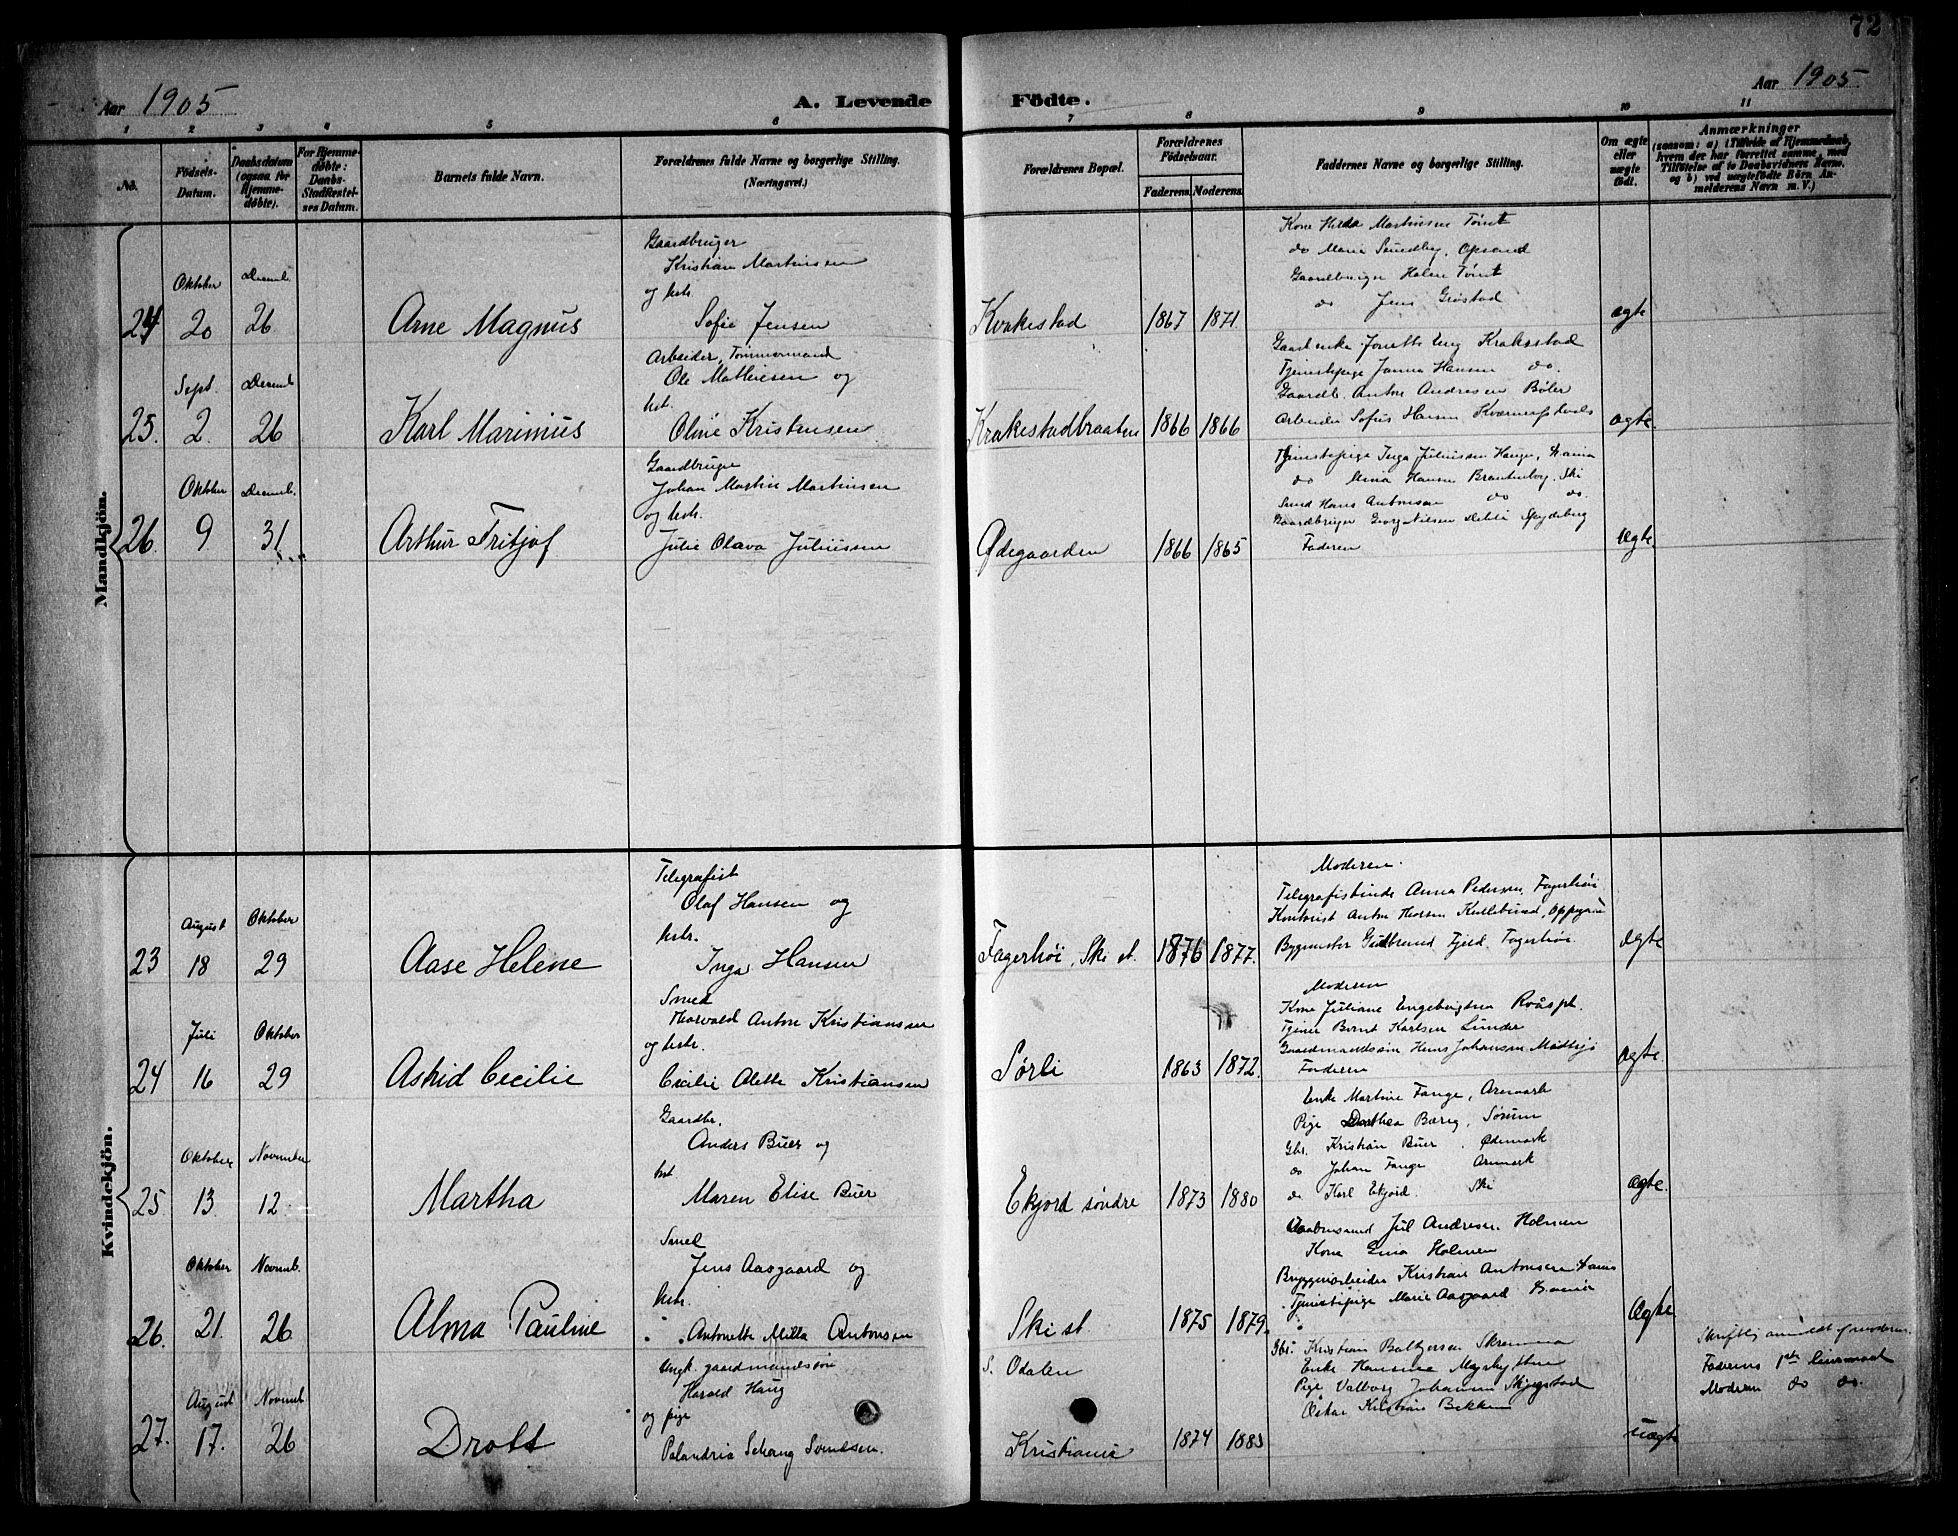 72
Aar 1905
A. Levende Födte.
Aar 1905
1 2 3 4 5 6 7 8 9 10 11
No.
Födsels-Datum.
Daabsdatum (ogsaa for Hjemmedöbte).
For Hjemmedöbte: Daabs-Stadfæstelses Datum.
Barnets fulde Navn.
Forældrenes fulde Navne og borgerlige Stilling. (Næringsvei.)
Forældrenes Bopæl.
Forældrenes Födselsaar.
Faderens. Moderens.
Faddernes Navne og borgerlige Stilling.
Om ægte eller uægte födt.
Anmærkninger
(saasom: a) i Tilfælde af Hjemmedaab, hvem der har forrettet samme, med Tilföielse af to Daabsvidners Navne, og b) ved uægtefödte Börn Anmelderens Navn m. V.)
Mandkjön.
24 Oktober 20 Decemb. 26
Arne Magnus
Gaardbruger
Kristian Martinsen
og hstr.
Sofie Jensen
Krakestad
1867 1871
Kone Hilda Martinsen Tømt
do Marie Sundby, Opsand
Gaardbruger Halvor Tømt
do Jens Grøstad
ægte
25. Sept. 2. Decemb. 26
Karl Marinius
Arbeider, Tømmermand
Ole Mathiesen og
hst.
Oline Kristensen
Krakestadbraaten
1866 1866
Gaardenke Jonette Eng Krakstad
Tjenestepige Janna Hansen do.
Gaardb. Anton Andresen Bøler
Arbeider Sofus Hansen
ægte
26. Oktober 9 Decemb. 31
Arthur Fritjof
Gaardbruger
Johan Martin Martinsen
og hstr.
Julie Olava Juliussen
Ødegaarden
1866 1865
Tjenestepige Inga Juliussen Hauge,
do Mina Hansen Brandenborg, Ski
Smed Hans Antonsen do do.
Gaardbruger Georg Nilsen Spydeberg
Faderen
Ægte.
Kvindekjön.
23 August 18 Oktober 29
Aase Helene
Telegrafist
Olaf Hansen og
hstr.
Inga Hansen
Fagerhöi, Ski st.
1876 1877.
Moderen.
Telegrafistinde Anna Pedersen, Fagerhöi
Kontorist Anton Thorsen Kullebund, Oppegaard
Bygmester Gudbrand Fjeld, Fagerhöi
ægte
24 Juli 16 Oktober 29
Astrid Cecilie
Smed
Thorvald Anton Kristiansen
og hstr.
Cecilie Alette Kristiansen
Sørli
1863 1872.
Moderen
Kone Juliane Engebrigtsen Roåspl.
Tjener Bernt Karlsen Lunder
Gaardmandssøn Hans Johansen
Faderen
Ægte.
25 Oktober 13. November 12
Martha
Gaardbr.
Anders Buer og
hst.
Maren Elise Buer
Ekjord søndre
1873 1880
Enke Martine Fange, Aremark
Pige Dorthea Bærg, Sørum
Gbr. Kristian Buer, Ødemark
do Johan Fange Aremark
do Karl Ekjord. Ski
Ægte.
26. Oktober 21. Novemb. 26
Alma Pauline
Smed
Jens Aasgaard og
hstr.
Antonette Milla Antonsen
Ski st
1875 1879.
Jul Andresen Holmen
Kone Lina Holmen
Bryggeriarbeider Kristian Antonsen
Tjenestepige Marie Aasgaard
Ægte
27. August 17. Novemb. 26
Drott
Ungk. gaardmandssøn
Harald Haug
og pige
Palandria Scherng Svendsen.
S. Odalen
Kristiania
1874 1883
Gbr. Kristian Bolbjersen Skremma
Enke Hansine
Pige Valborg Johansen Skjegstad
Oskar Kristian Bekken
uægte
Skriftlig anmeldt af moderen.
Faderens 1ste leiermaal
Moderen do do.